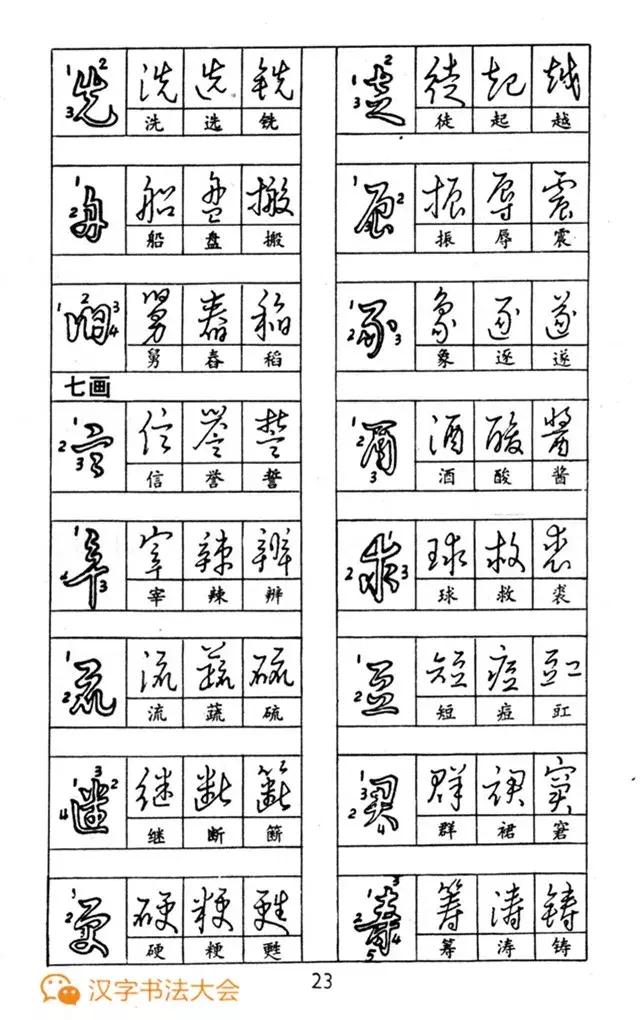 先 洗 选 铣
洗 选 铣
舟 船 盘 搬
船 盘 搬
臼 舅 舂 稻
舅 舂 稻
七画
言 信 誉 誓
信 誉 誓
辛 宰 辣 辨
宰 辣 辨
㐬 流 蔬 硫
流 蔬 硫
继 断 簖
继 断 簖
更 硬 粳 甦
硬 粳 甦
走 徒 起 越
徒 起 越
辰 振 辱 震
振 辱 震
豕 象 逐 遂
象 逐 遂
酉 酒 酸 酱
酒 酸 酱
求 球 救 裘
球 救 裘
豆 短 痘 豇
短 痘 豇
君 群 裙 窘
群 裙 窘
寿 筹 涛 铸
筹 涛 铸
23
汉字书法大会